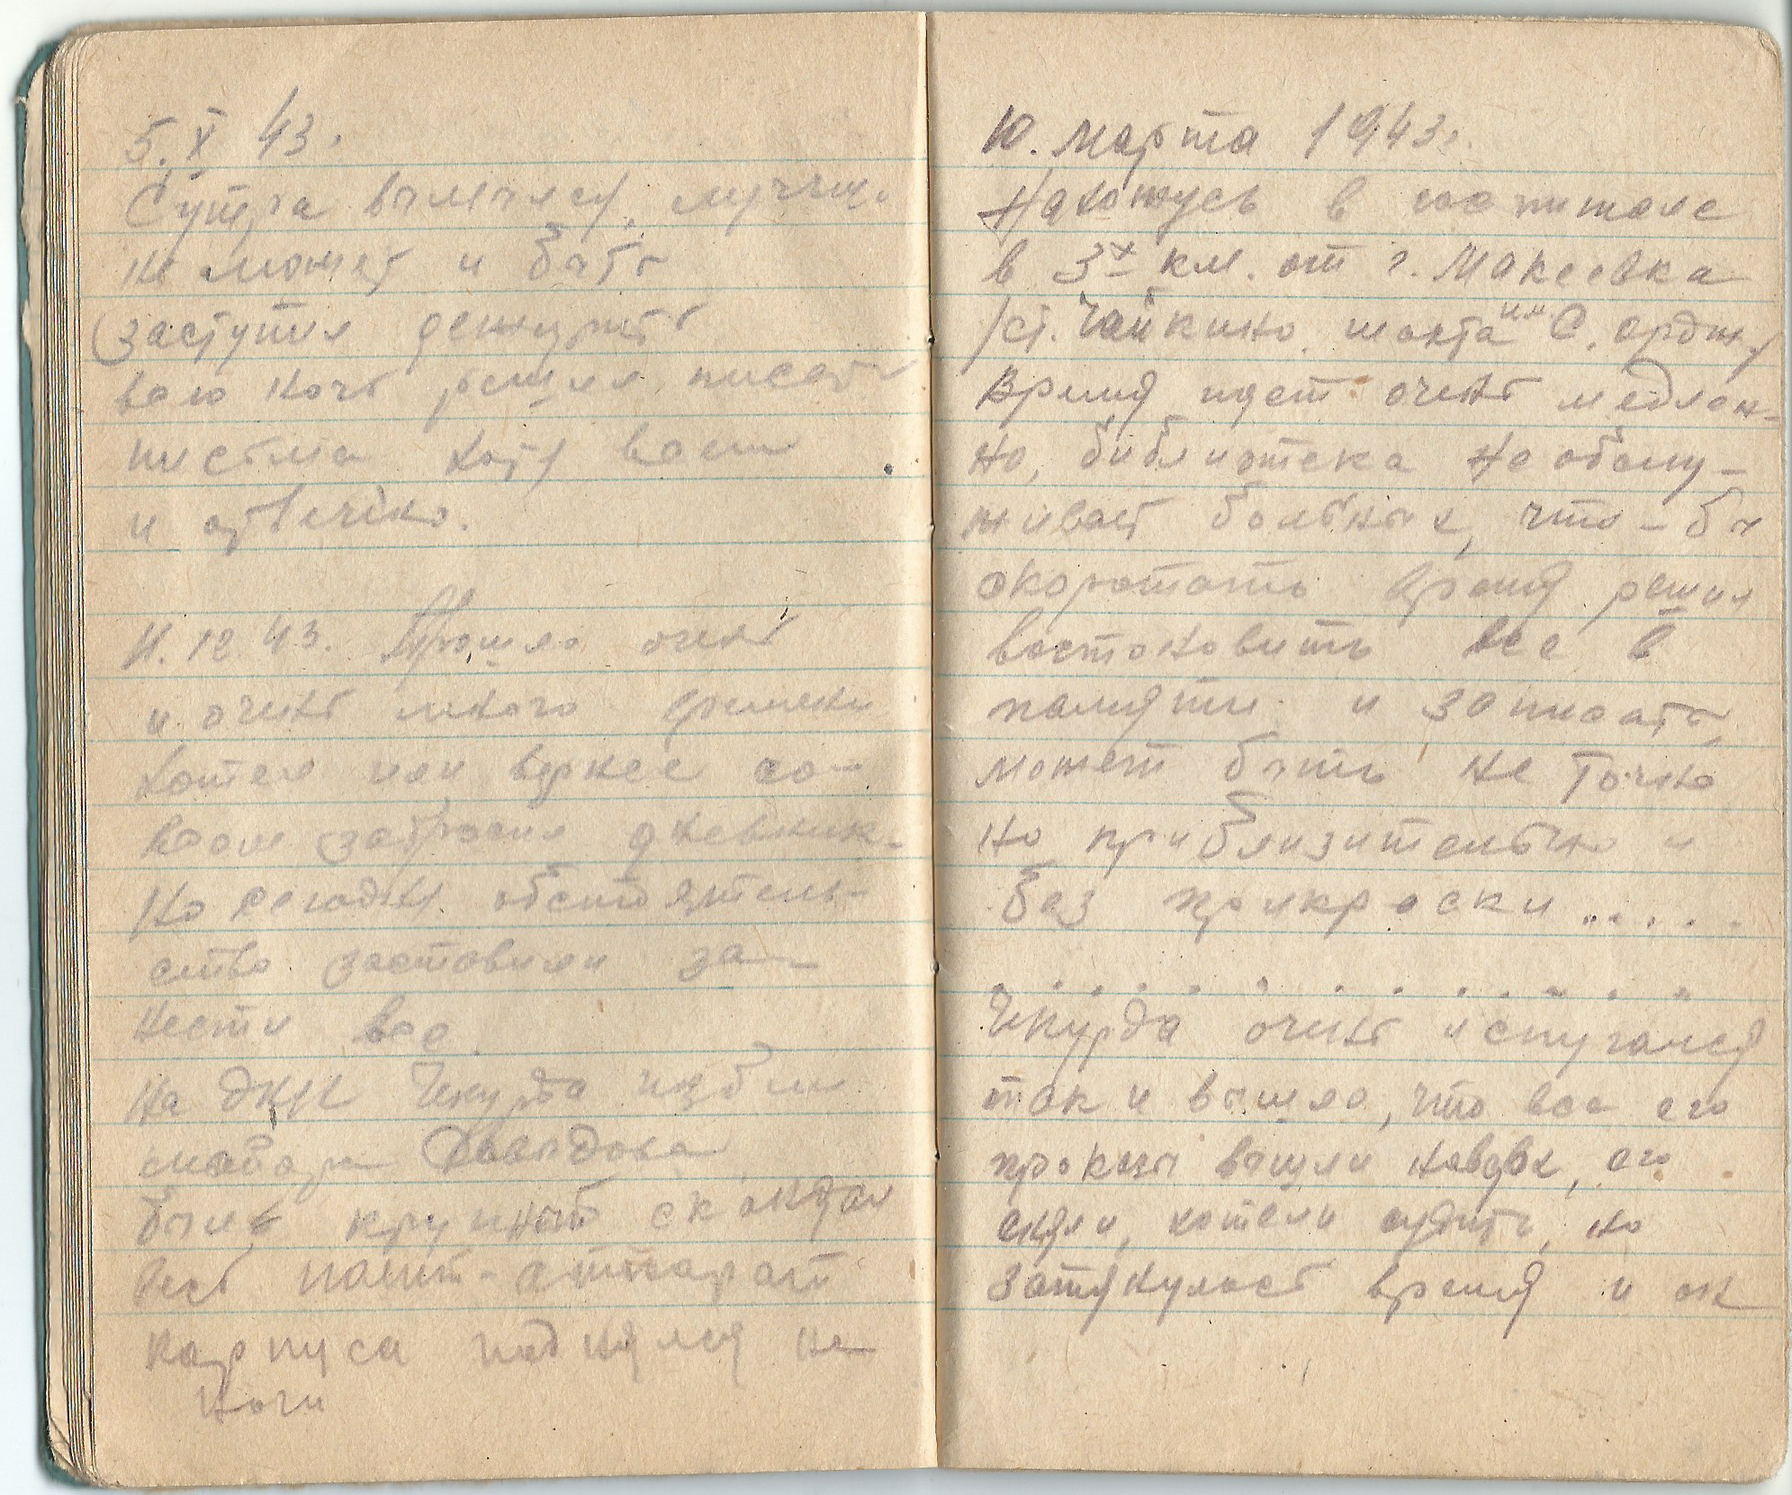 5. X 43.
Сутра вымылся, лучше
не может и быть
заступил дежурить
всю ночь решил писать
письма хотя всем
и отвечено.
11. 12 43. Прошло очень
и очень много времени
хотел или вернее со-
всем забросил дневник.
Но сегодня обстоятель-
ство заставили за-
нести все.
На днях Чекурда избил
майора
было крупный скандал
весь полит-аппарат
корпуса подняли на
ноги
10. Марта 1943г.
Нахожусь в госпитале
в 3х км. от г. Макеевка
/ст. Чайкино, шахта им С. Ордж./
Время идет очень медлен-
но, библиотека не обслу-
живает больных, что-бы
скоротать время решил
востоновить все в
памяти и записать,
может быть не точно
но приблизительно и
без прикраски .....
. . . . . . . . . . . . .
Чекурда очень испугался
так и вышло, что все его
проказы вышли наверх, его
сняли, хотели судить, но
затянулось время и он